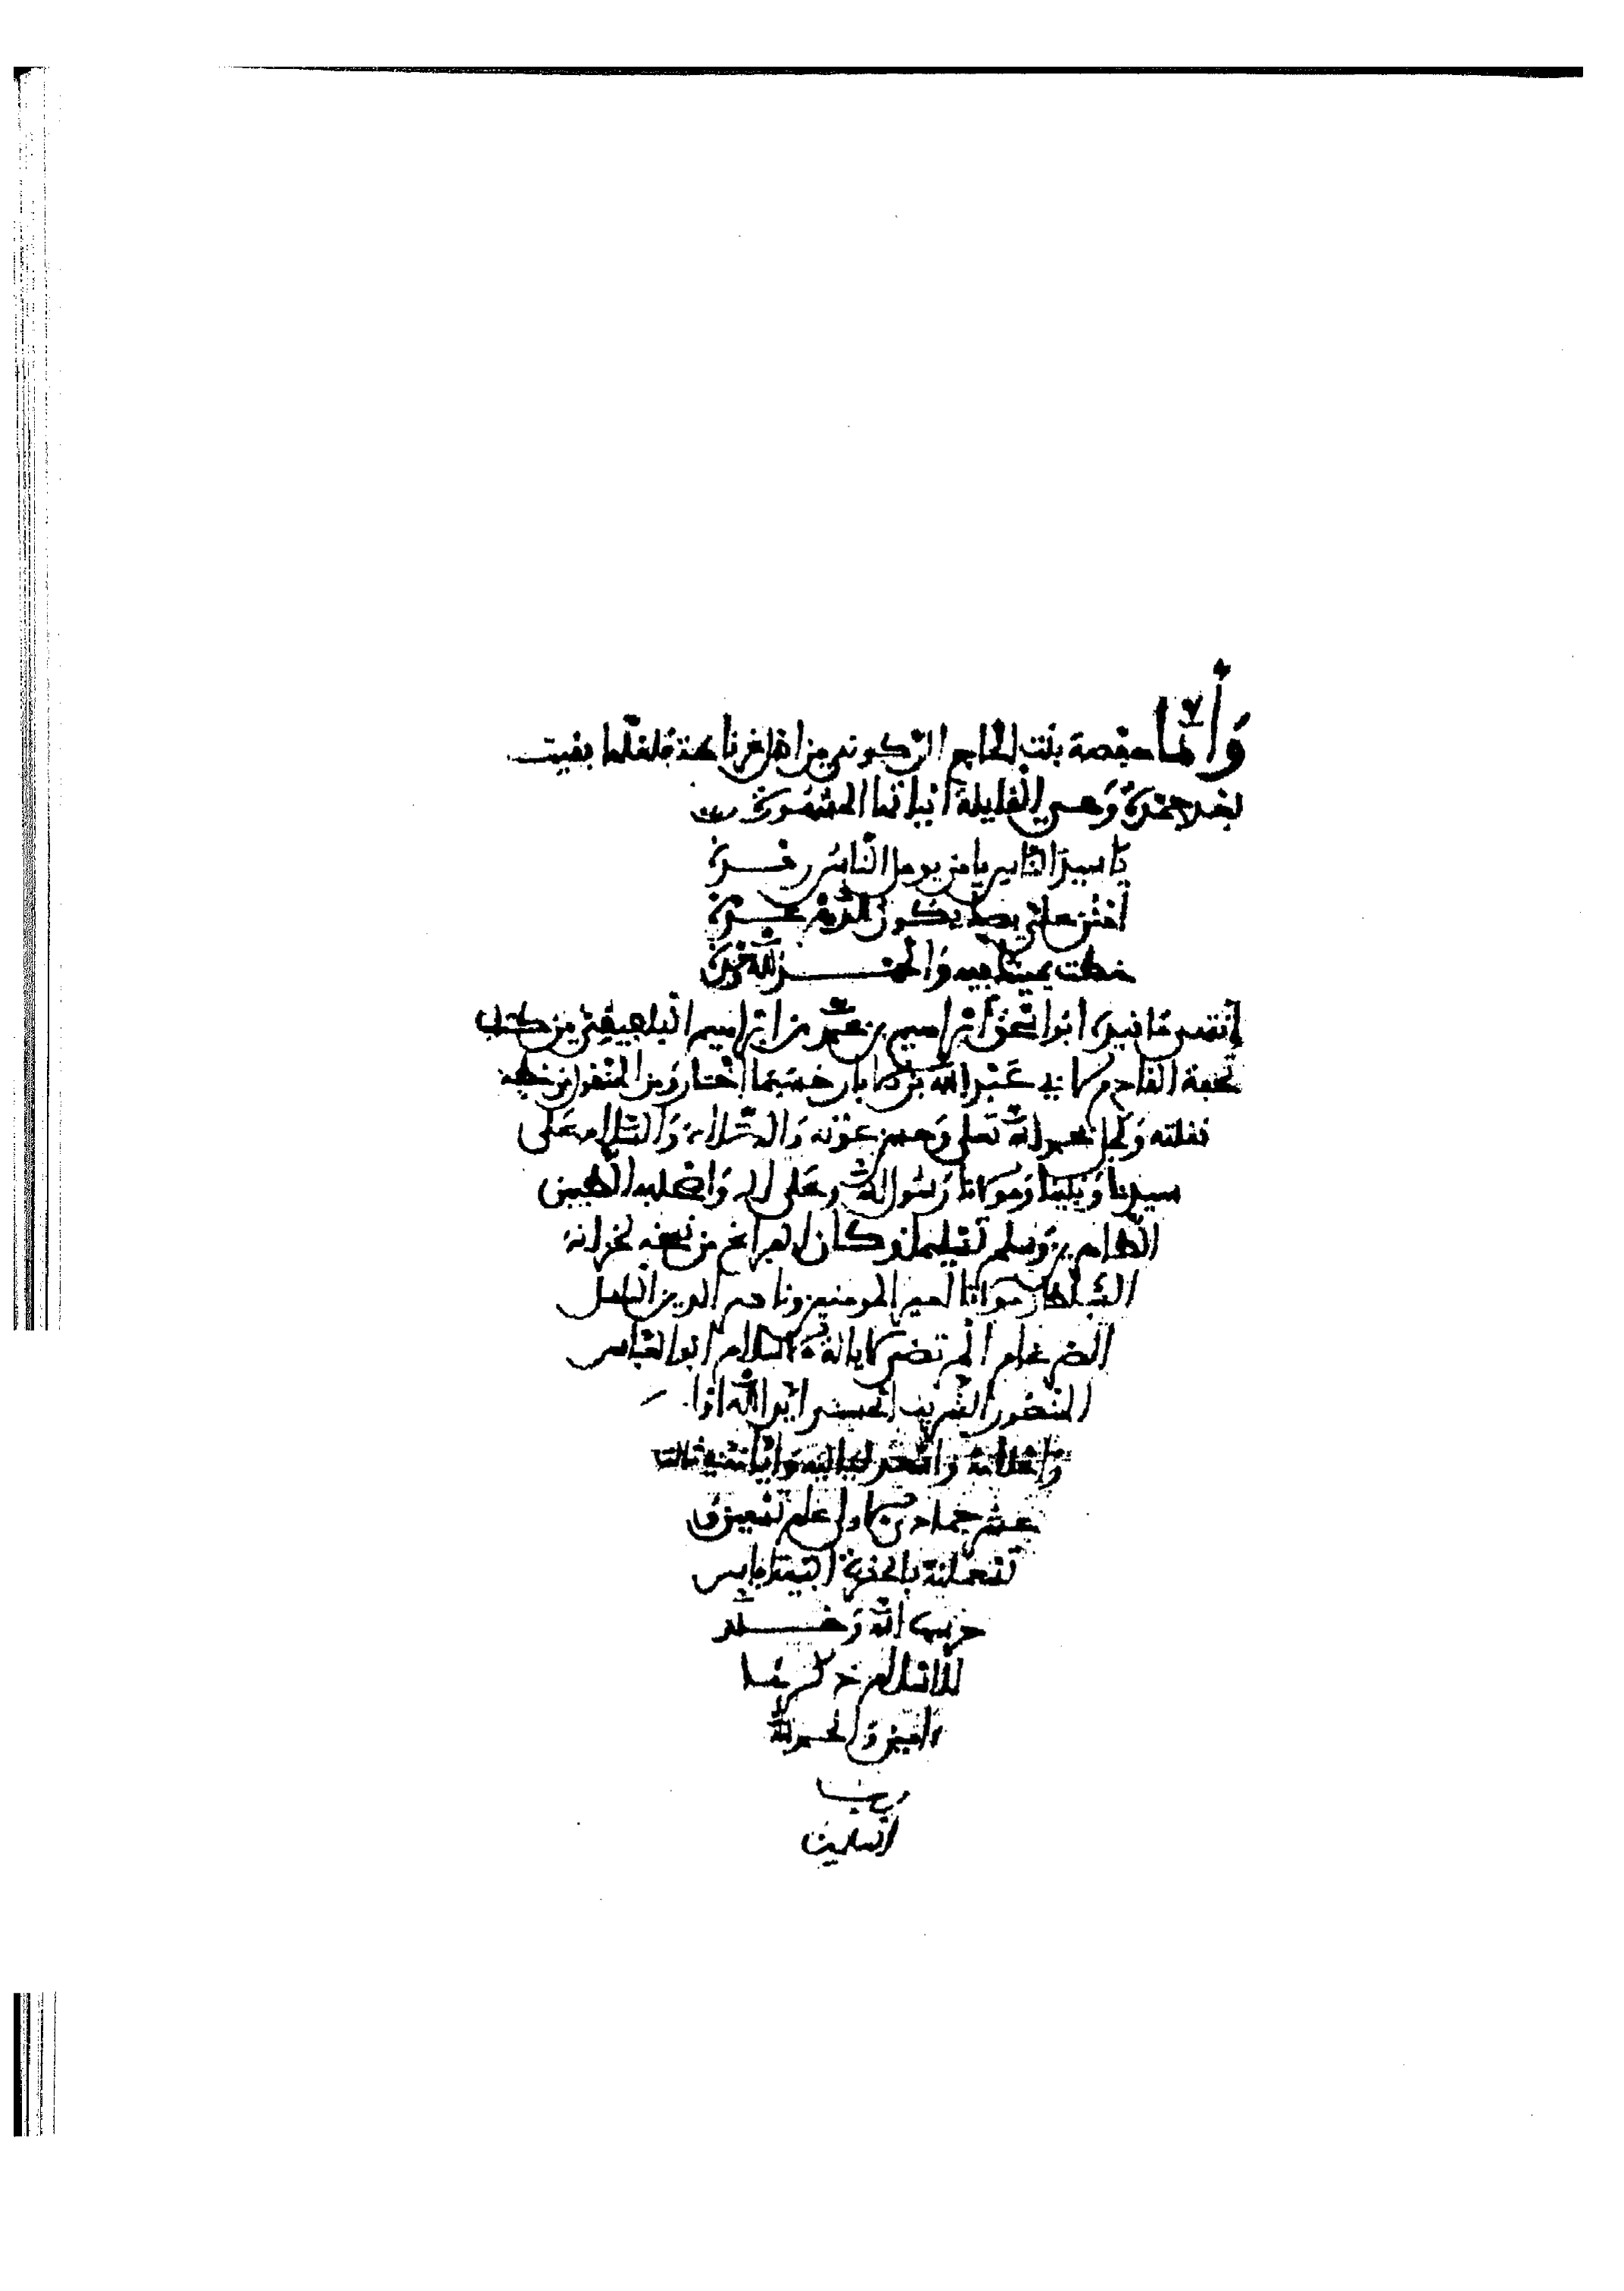 وَأَمَّا حفصة بنت الحاج الركوني من أهل غرناطة فلعلها بقيت
بعد حمدة وهي القايلة أبياتها المشهورة
يا سيد الناس يا من يومل الناس رفده
أمنن علي بصك يكون للدهر عده
خطت يمينك فيه والحمد لله وحده
إنتهى ما قيده أبو إسحق إبراهيم بن محمد بن إبراهيم البلفيقي من كتاب
تحفة القادم لأبي عبد الله بن الأبار حسبما اختاره ومن المنقول من خطه
نقلته وكمل بحمد الله تعلى وحسن عونه والصلاة والسلام على
سيدنا ونبينا ومولانا رسول الله وعلى آله وأصحابه الطيبين
الطاهرين وسلم تسليما وكان الفراغ من نسخه لخزانة
السلطان مولانا أمير المومنين وناصر الدين الباسل
الضرغام المرتضى لإيالة الاسلام أبو العباس
المنصور الشريف الحسني أيد الله أوا
مره وأسعد لياليه وأيامه في ثالث
عشر جمادى الأولى عام تسعين و
تسعمائة بالحضرة
حرسها الله وخلد
للاسلام ذكرها
آمين والحمد لله
رب
العالمين